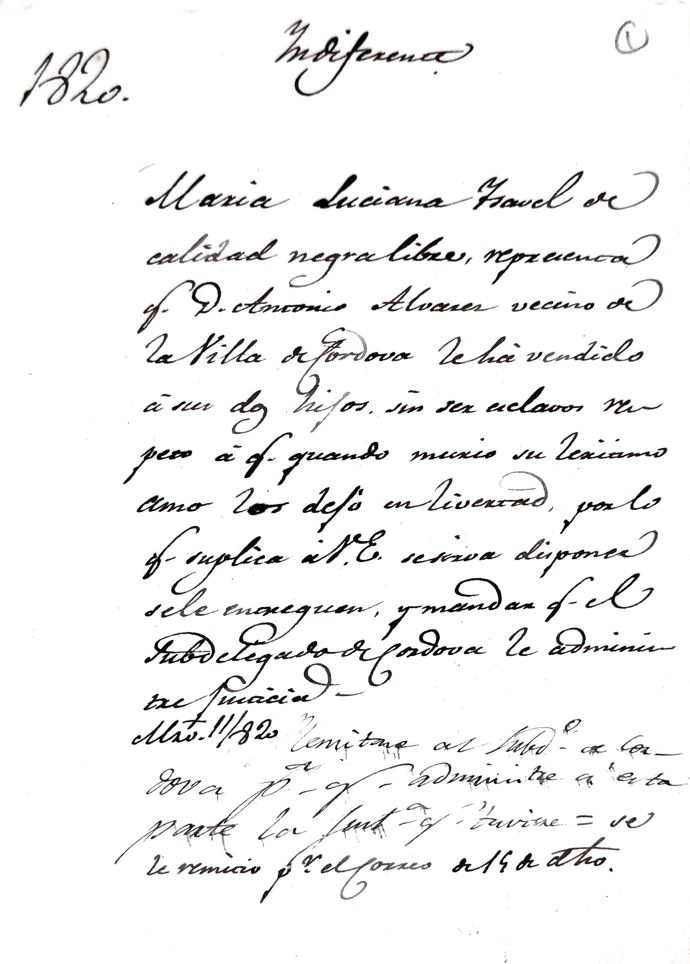 Indiferente
1
1820.
Maria Luciana Ysavel de
calidad negra libre, representa
q.e D. Antonio Alvarez vecino de
la Villa de Cordova le há vendido
á sus dos hijos, sin ser esclavos res-
pecto á q.e quando murio su lexitimo
amo los dejó en livertad, por lo
q.e suplica á V.E. se sirva disponer
sele entreguen, y mandar q.e el
Subdelegado de Cordova le adminis-
tre Justicia
Mzo. 11/820 Remitase al Subd.o de Cor-
dova p.a q.e administre á esta
parte la Just.a q.e tuviere = se
le remitio p.r el Correo de 15 de dho.